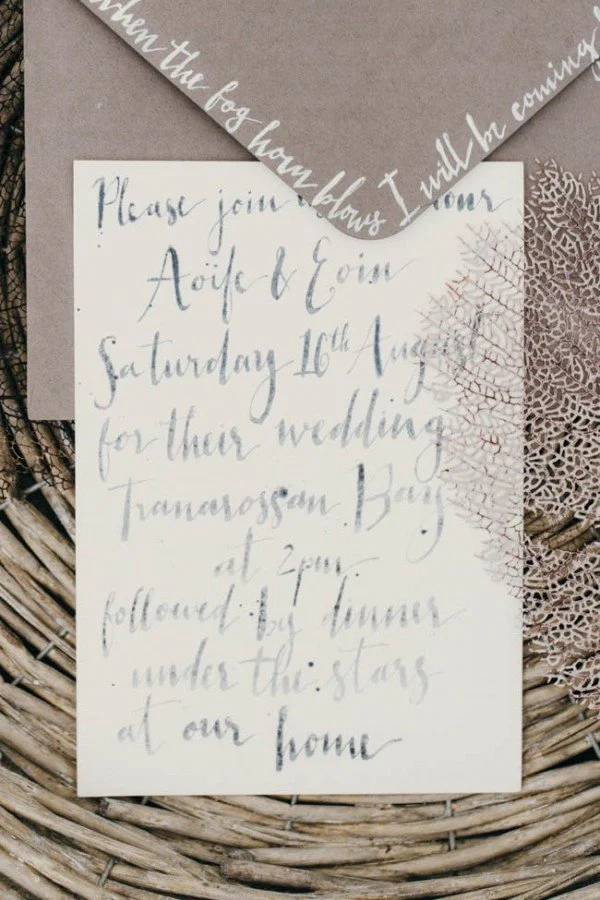 when the fog horn blows I will be coming
Please join our
Aoïfe & Eoin
Saturday 16th August
for their wedding
Tranarossan Bay
at 2pm
followed by dinner
under the stars
at our home